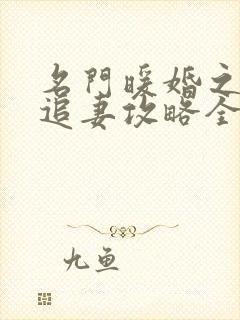 名門暖婚之
追妻攻略全
九鱼